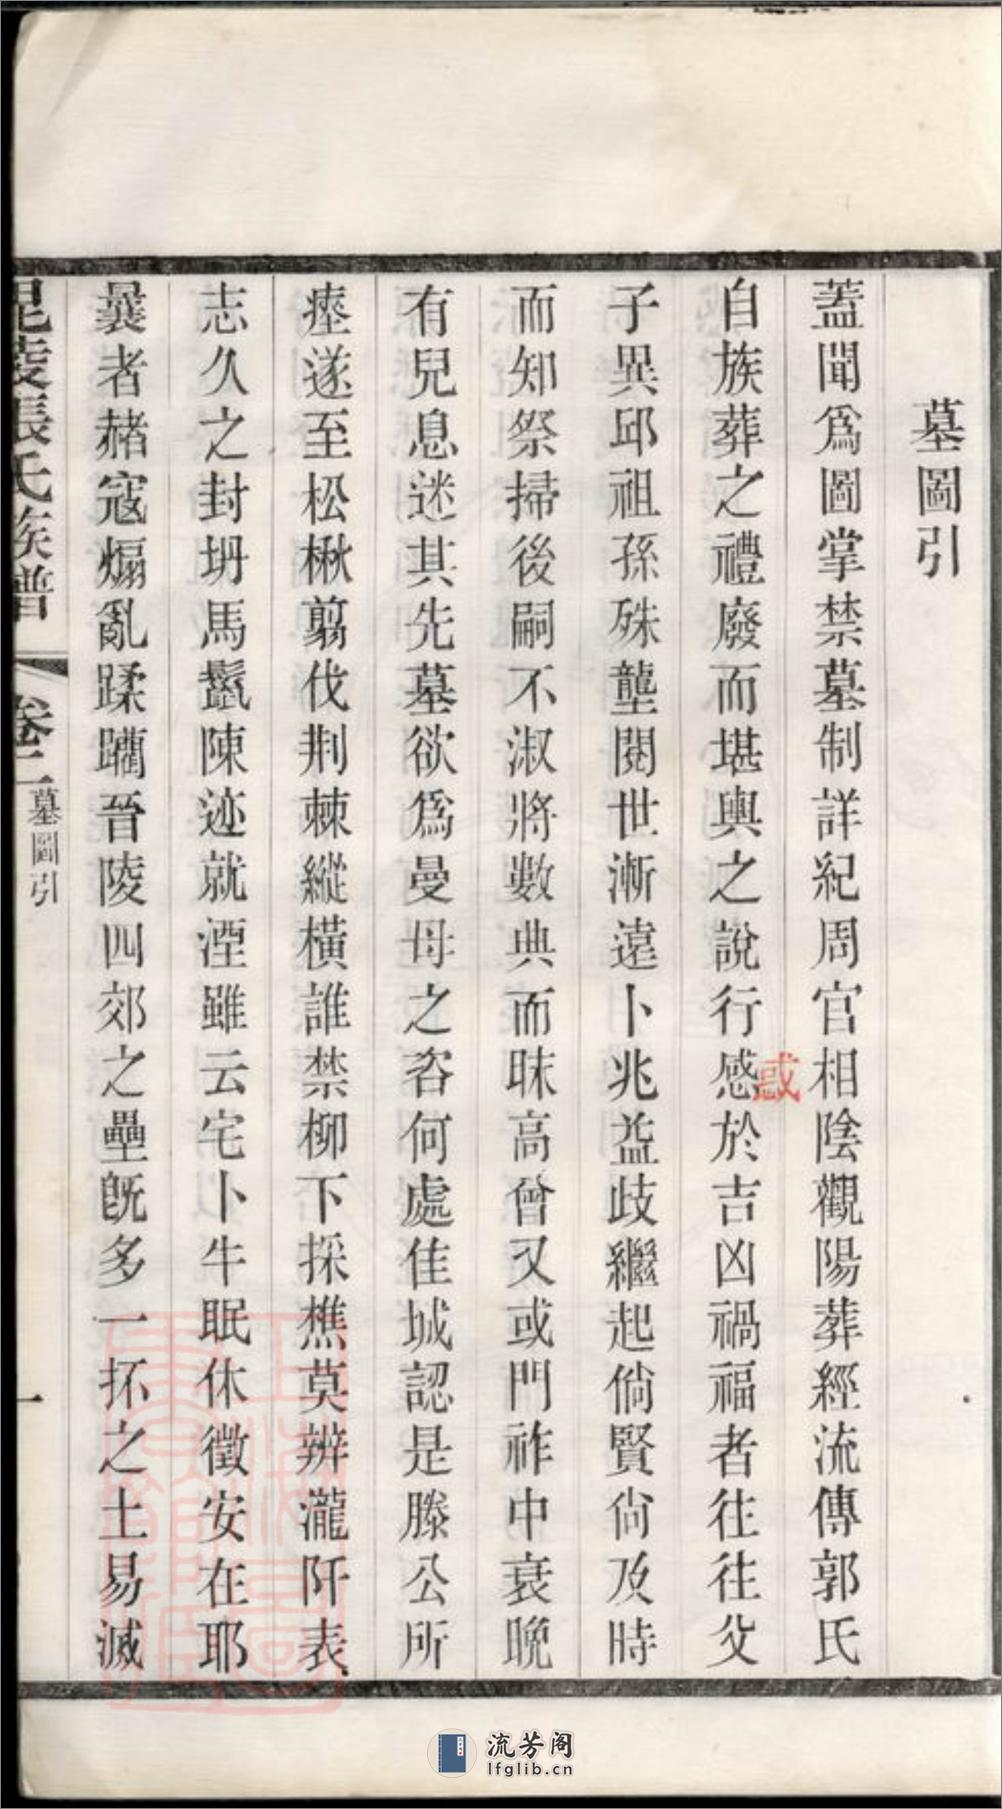 墓圖引
蓋聞爲圖掌禁墓制詳紀周官相陰觀陽葬經流傳郭氏
自族葬之禮廢而堪輿之說行感於吉凶禍福者往往父
惑
子異邱祖孫殊壟閱世漸遠卜兆益歧繼起倘賢尙及時
而知祭掃後嗣不淑將數典而昧高曾又或門祚中衰晚
有兒息迷其先墓欲爲曼母之咨何處佳城認是滕公所
瘞遂至松楸翦伐荆棘縱橫誰禁柳下採樵莫辨瀧阡表
志久之封坍馬鬣陳迹就湮雖云宅卜牛眠休徵安在耶
曩者赭寇煽亂蹂躪晉陵四郊之壘旣多一抔之土易滅
毘陵張氏族譜
卷二
墓圖引
一
流芳阁
lfglib.cn